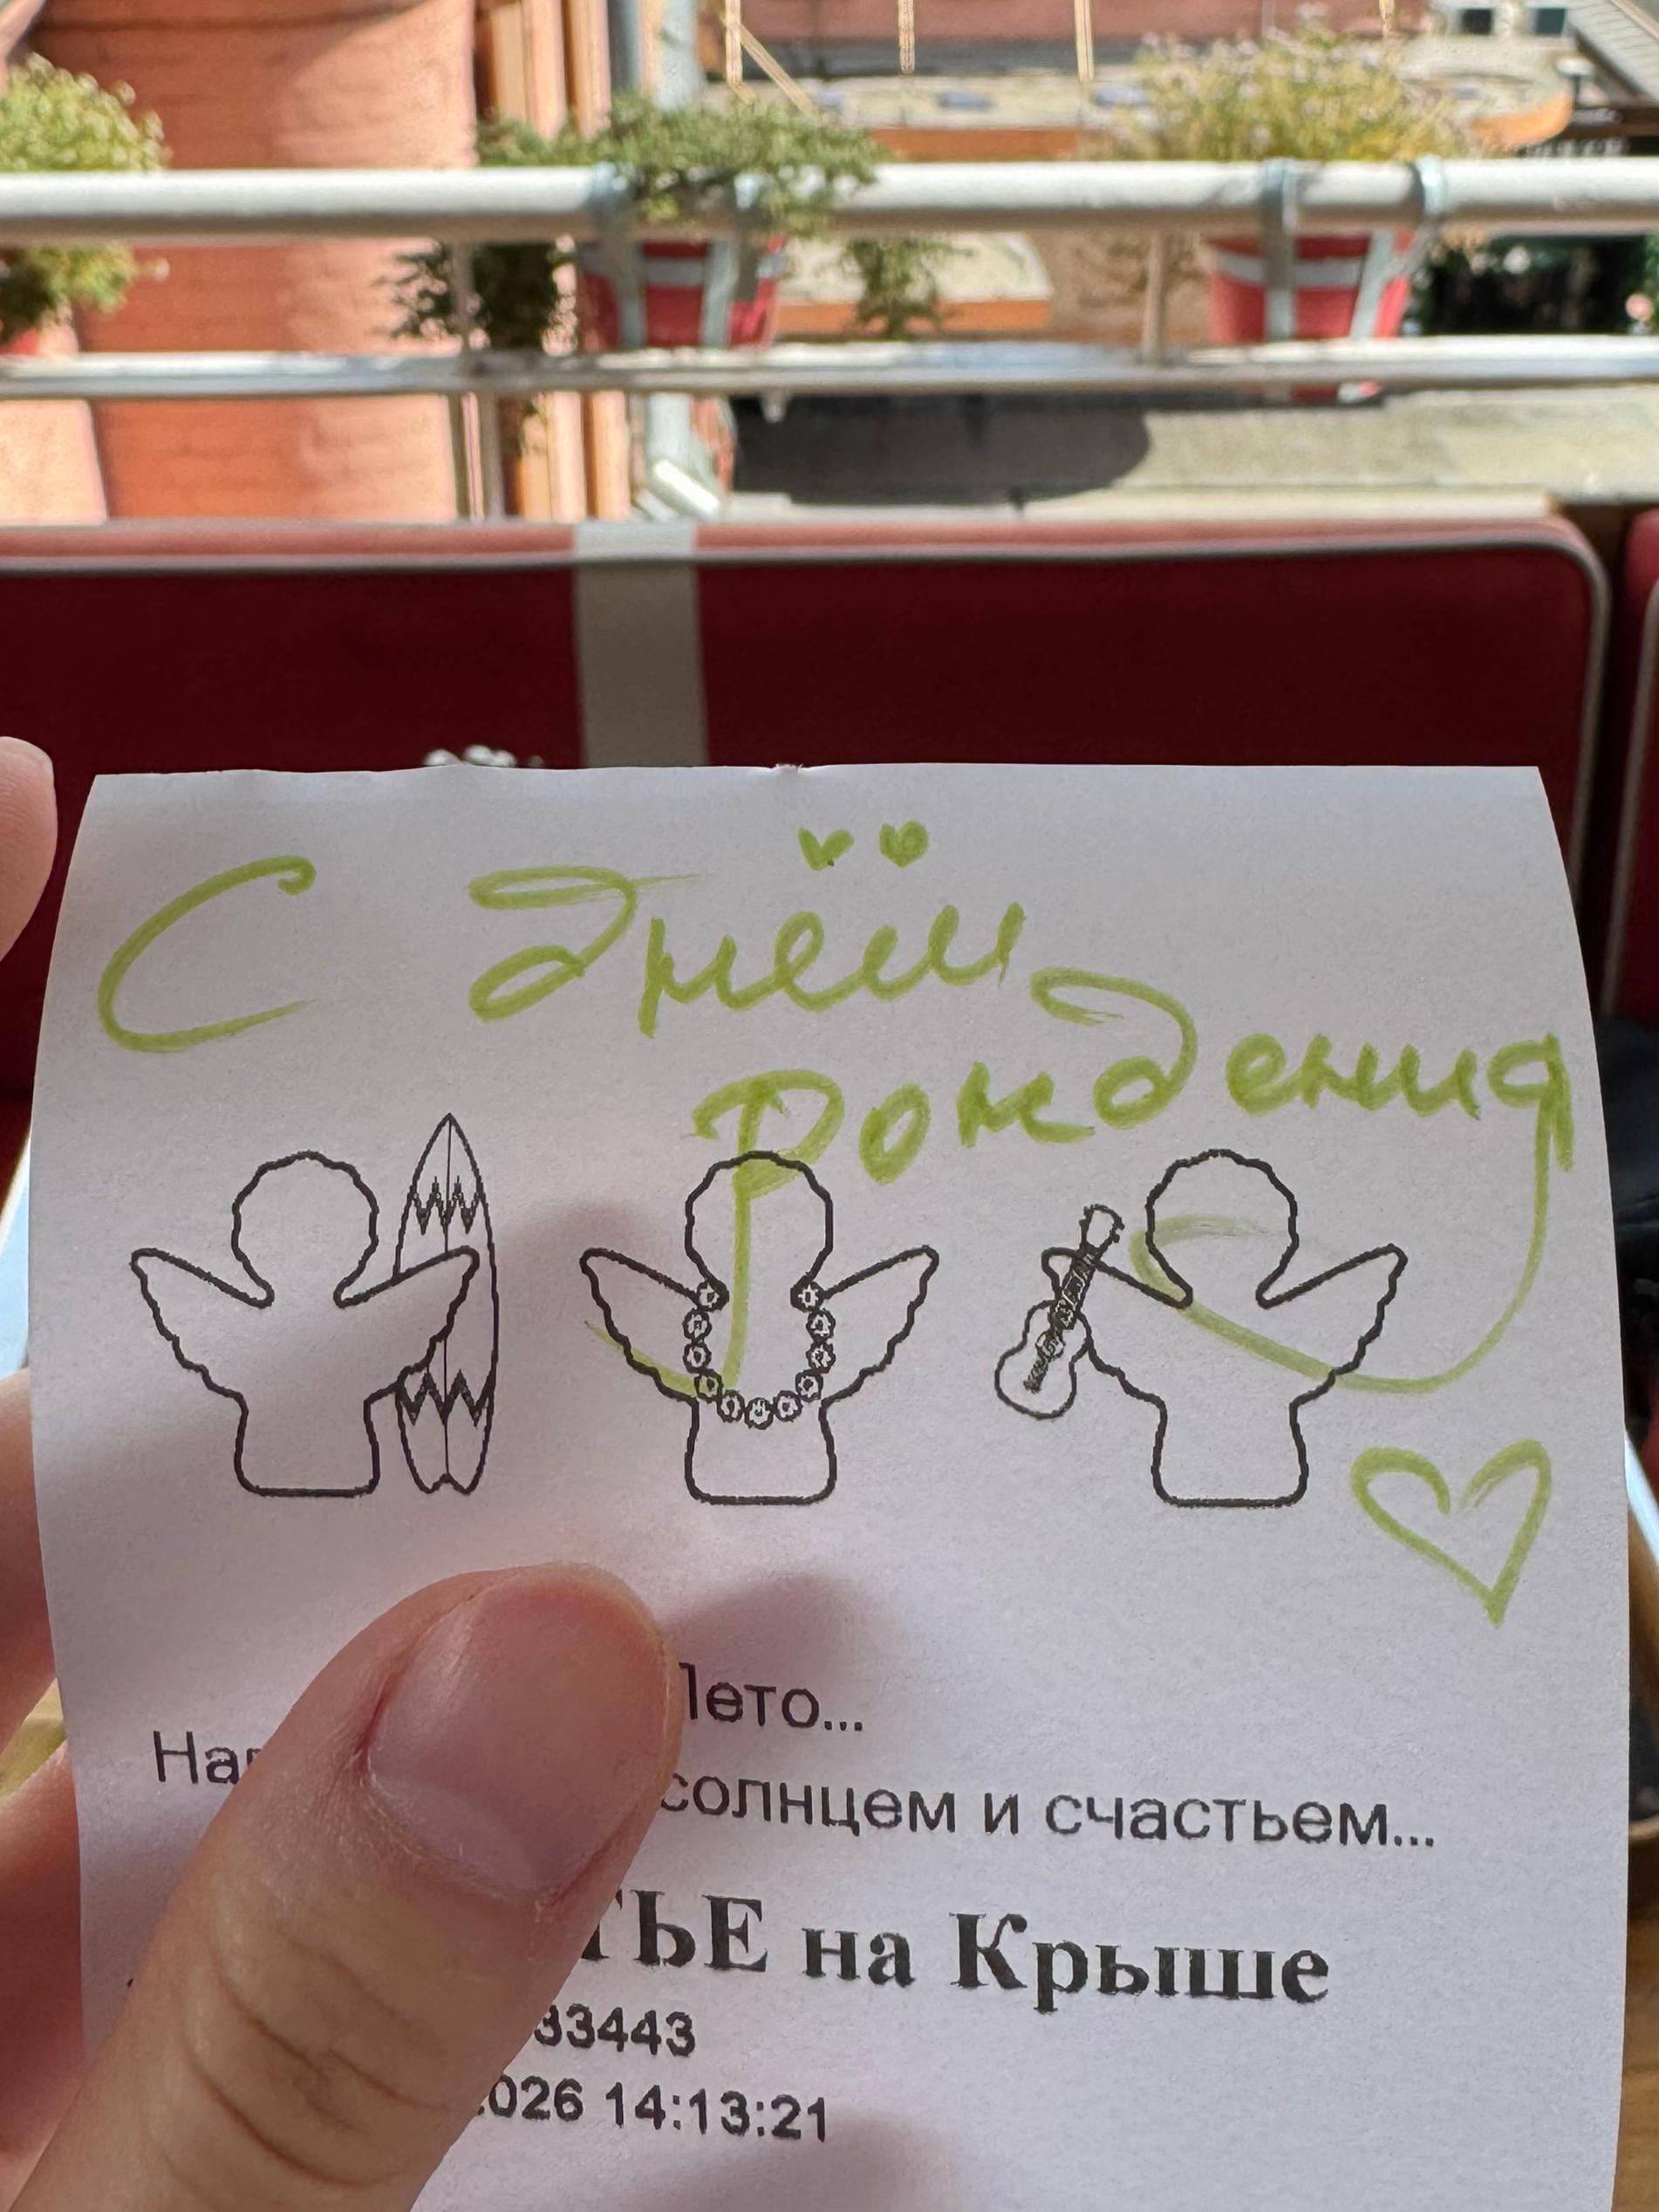 С днём
рождения
Лето...
солнцем и счастьем...
на Крыше
33443
14:13:21